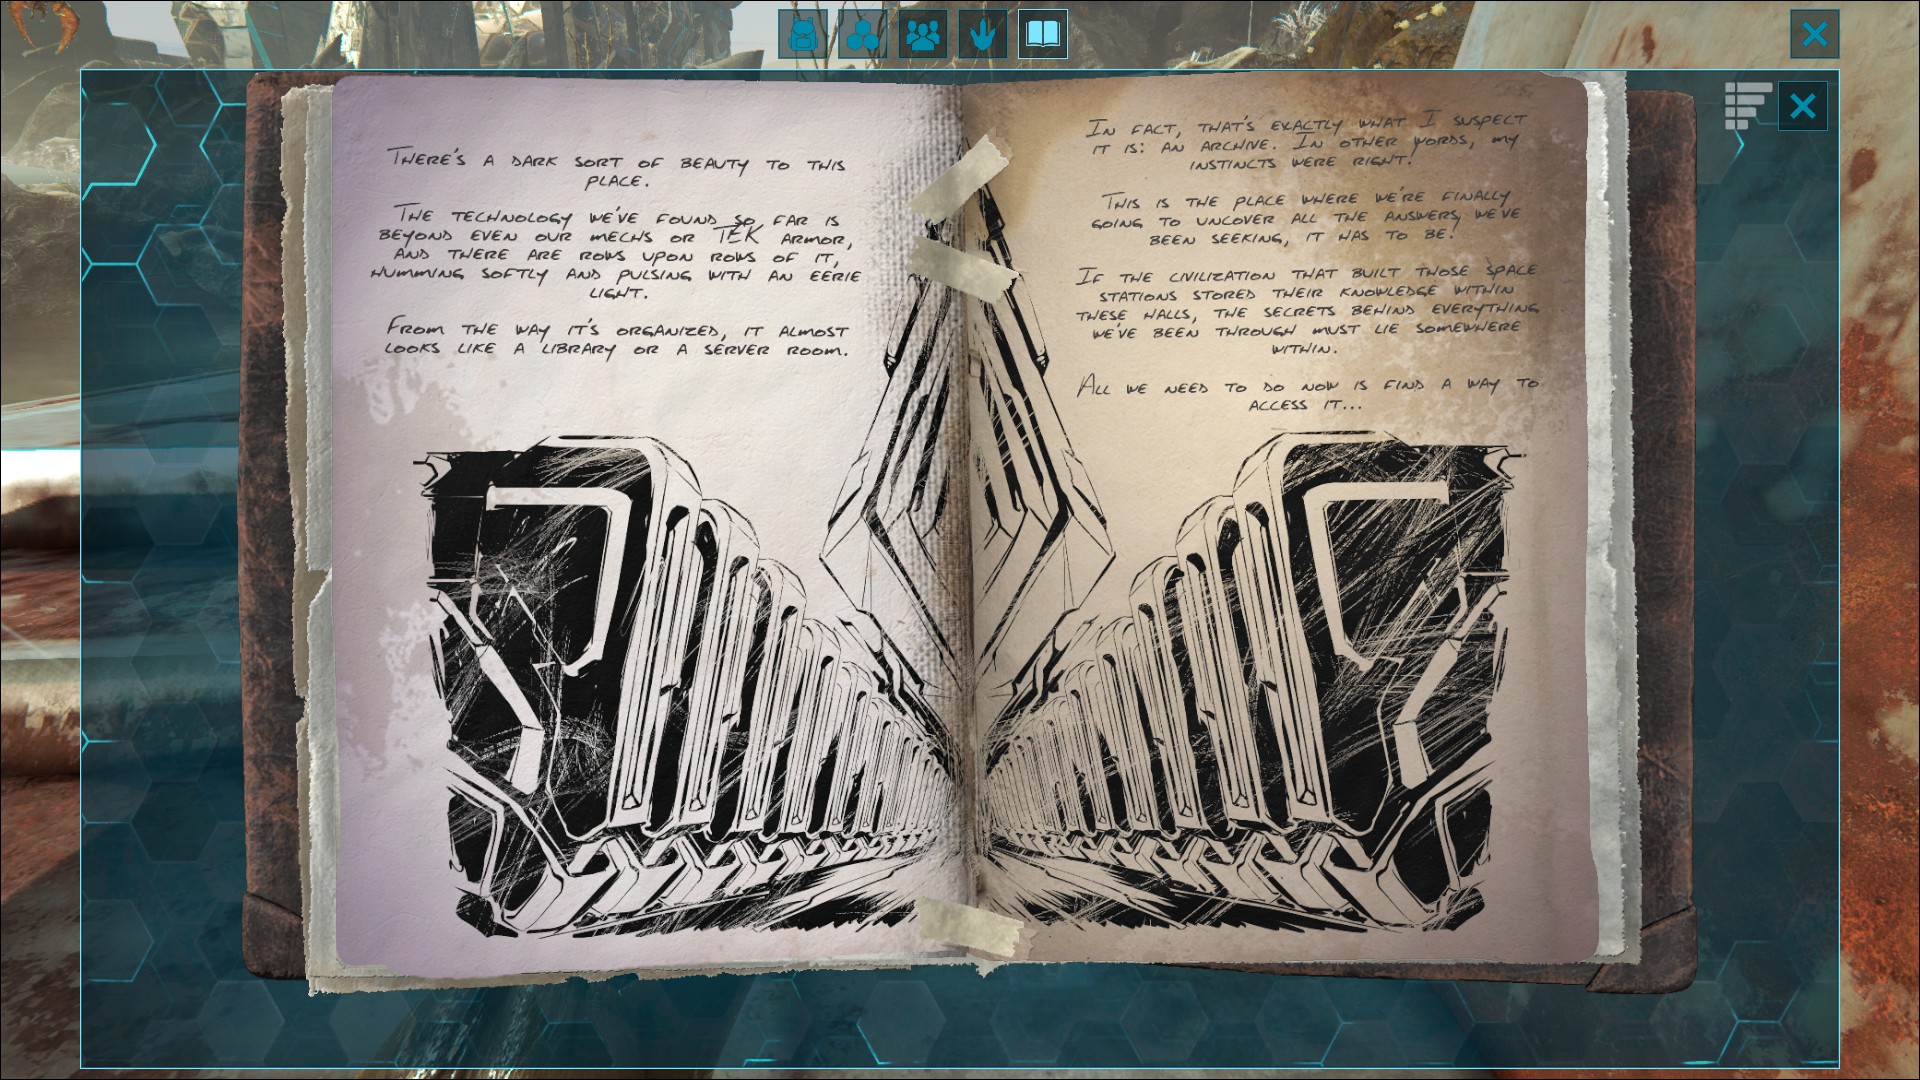 There's a dark sort of beauty to this
place.
The technology we've found so far is
beyond even our mechs or TEK armor,
and there are rows upon rows of it,
humming softly and pulsing with an eerie
light.
From the way it's organized, it almost
looks like a library or a server room.
In fact, that's exactly what I suspect
it is: an archive. In other words, my
instincts were right!
This is the place where we're finally
going to uncover all the answers we've
been seeking, it has to be!
If the civilization that built those space
stations stored their knowledge within
these halls, the secrets behind everything
we've been through must lie somewhere
within.
All we need to do now is find a way to
access it...